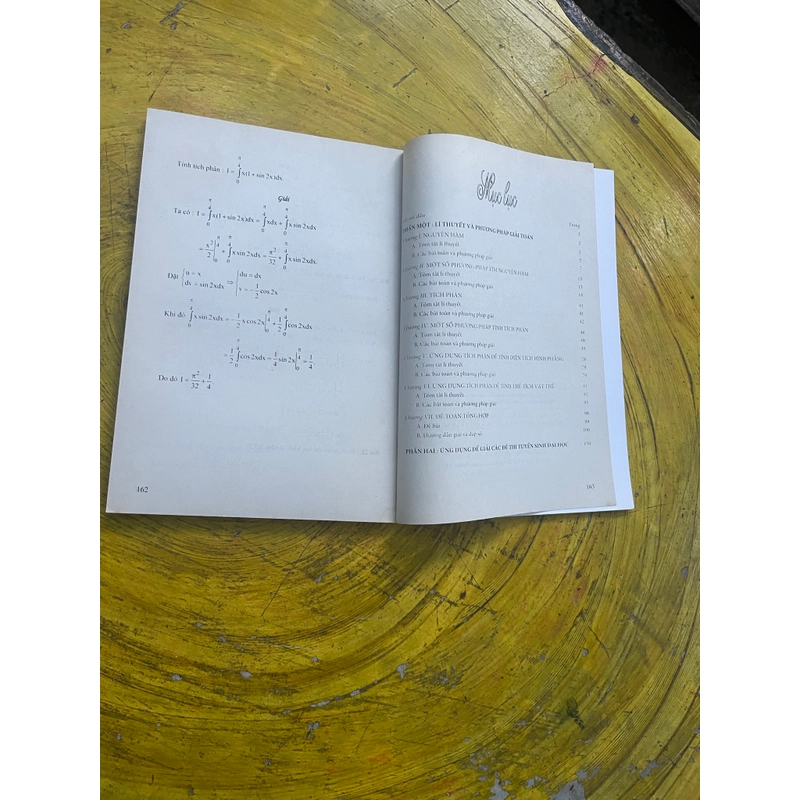 Tính tích phân : I = ∫₀^(π/4) x(1 + sin 2x)dx.
Giải
Ta có : I = ∫₀^(π/4) x(1 + sin 2x)dx = ∫₀^(π/4) xdx + ∫₀^(π/4) x sin 2xdx
= x²/2 |₀^(π/4) + ∫₀^(π/4) x sin 2xdx = π²/32 + ∫₀^(π/4) x sin 2xdx.
Đặt { u = x ; dv = sin 2xdx ⇒ { du = dx ; v = −1/2 cos2x
Khi đó ∫₀^(π/4) x sin 2xdx = −1/2 x cos 2x |₀^(π/4) + 1/2 ∫₀^(π/4) cos 2xdx
= 1/2 ∫₀^(π/4) cos 2xdx = 1/4 sin 2x |₀^(π/4) = 1/4.
Do đó I = π²/32 + 1/4
162
Mục lục
đầu Trang
PHẦN MỘT : LÍ THUYẾT VÀ PHƯƠNG PHÁP GIẢI TOÁN
Chương I. NGUYÊN HÀM
A. Tóm tắt lí thuyết
B. Các bài toán và phương pháp giải
Chương II. MỘT SỐ PHƯƠNG PHÁP TÌM NGUYÊN HÀM
A. Tóm tắt lí thuyết
B. Các bài toán và phương pháp giải
Chương III. TÍCH PHÂN
A. Tóm tắt lí thuyết
B. Các bài toán và phương pháp giải
Chương IV. MỘT SỐ PHƯƠNG PHÁP TÍNH TÍCH PHÂN
A. Tóm tắt lí thuyết
B. Các bài toán và phương pháp giải
Chương V. ỨNG DỤNG TÍCH PHÂN ĐỂ TÍNH DIỆN TÍCH HÌNH PHẲNG
A. Tóm tắt lí thuyết
B. Các bài toán và phương pháp giải
Chương VI. ỨNG DỤNG TÍCH PHÂN ĐỂ TÍNH THỂ TÍCH VẬT THỂ
A. Tóm tắt lí thuyết
B. Các bài toán và phương pháp giải
Chương VII. ĐỀ TOÁN TỔNG HỢP 98
A. Đề bài 98
B. Hướng dẫn giải và đáp số 100
PHẦN HAI : ỨNG DỤNG ĐỂ GIẢI CÁC ĐỀ THI TUYỂN SINH ĐẠI HỌC
163